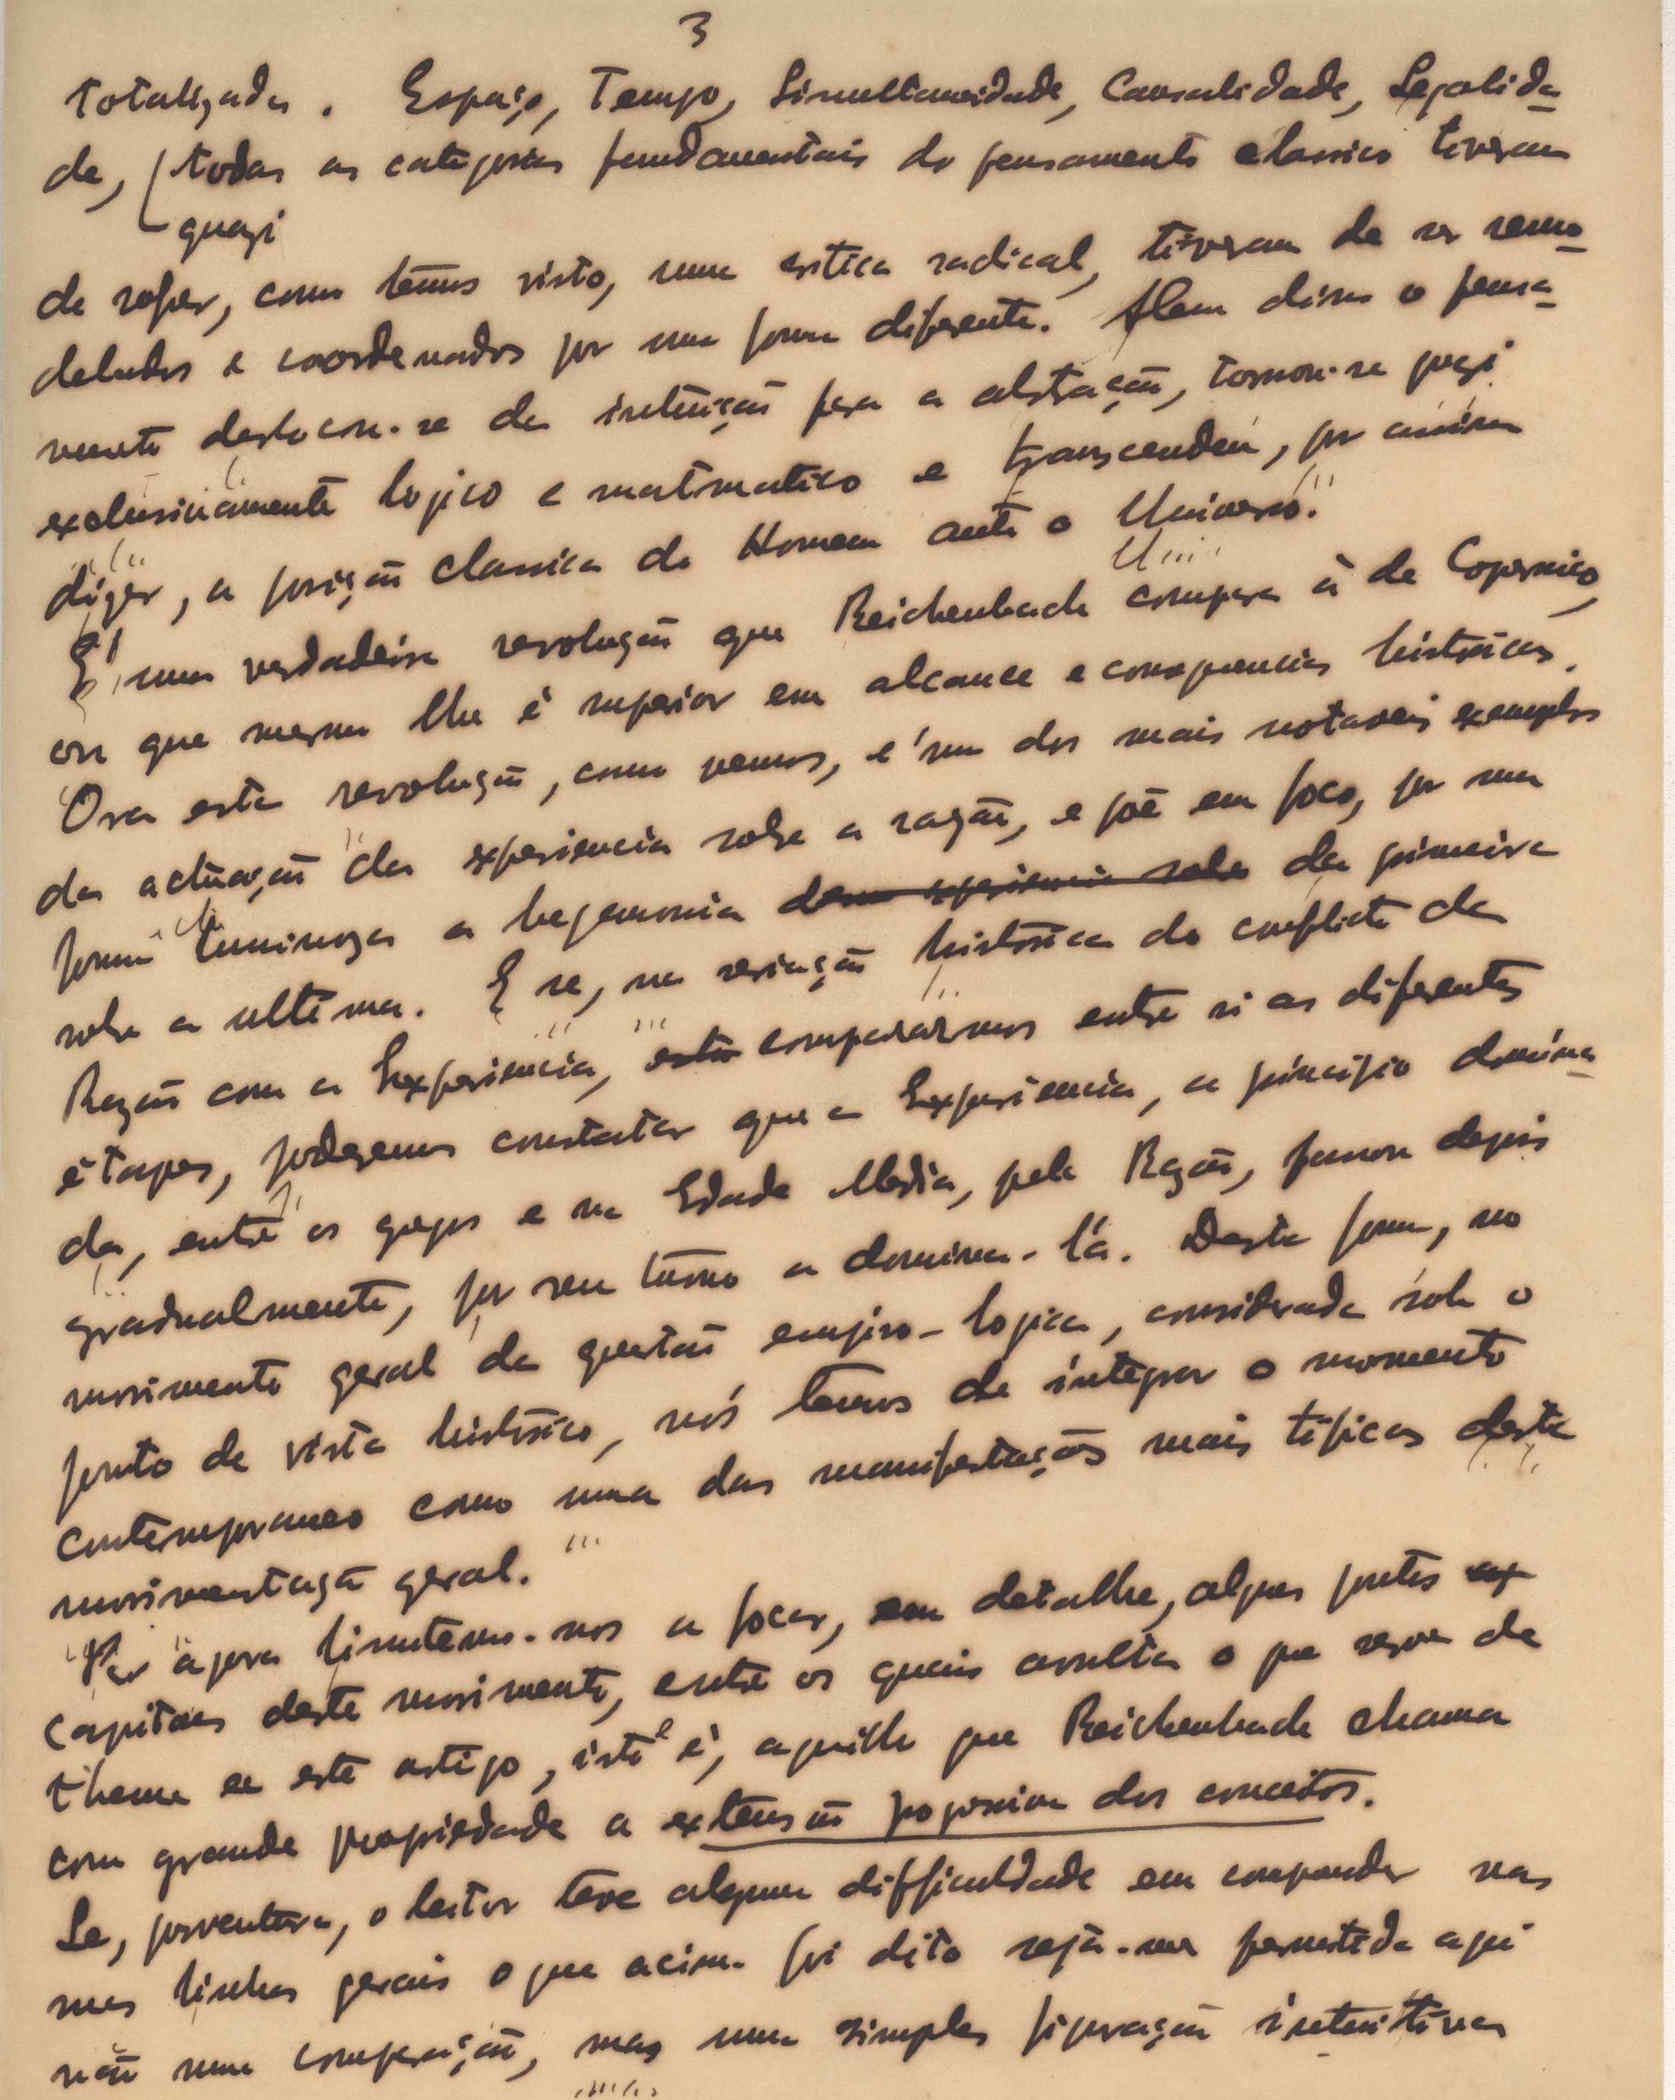 3
totalizada. Espaço, Tempo, Simultaneidade, Causalidade, Legalida-
de, todas as categorias fundamentais do pensamento classico tiveram
quazi
de sofrer, como temos visto, uma critica radical, tiveram de ser remo-
delados e coordenados por uma forma diferente. Alem disso o pensa-
mento deslocou-se da intuição para a abstração, tornou-se quazi
exclusivamente logico e matematico e transcendeu, por assim
dizer, a posição classica do Homem ante o Universo.
É uma verdadeira revolução que Reichenbach compara à de Copernico,
ou que mesmo lhe é superior em alcance e consequencias historicas.
Ora esta revolução, como vemos, é um dos mais notaveis exemplos
da actuação da experiencia sobre a razão, e põe em foco, por uma
forma luminoza a hegemonia da primeira
sobre a ultima. E se, na seriação historica do conflicto da
Razão com a Experiencia, compararmos entre si as diferentes
étapes, poderemos constatar que a Experiencia, a principio domina-
da, entre os gregos e na Edade Media, pela Razão, passou depois
gradualmente, por seu turno a domina-la. Desta forma, no
movimento geral da questão empiro-logica, considerada sob o
ponto de vista historico, nós temos de integrar o momento
contemporaneo como uma das manifestações mais tipicas desta
movimentação geral.
Por agora limitemo-nos a focar, em detalhe, alguns pontos
capitaes deste movimento, entre os quais avulta o que serve de
thema a este artigo, isto é, aquillo que Reichenbach chama
com grande propriedade a extensão progressiva dos conceitos.
Se, porventura, o leitor teve alguma difficuldade em compreender nas
mas linhas gerais o que acima foi dito seja-me permitida aqui
não uma comparação, mas uma simples figuração intuitiva